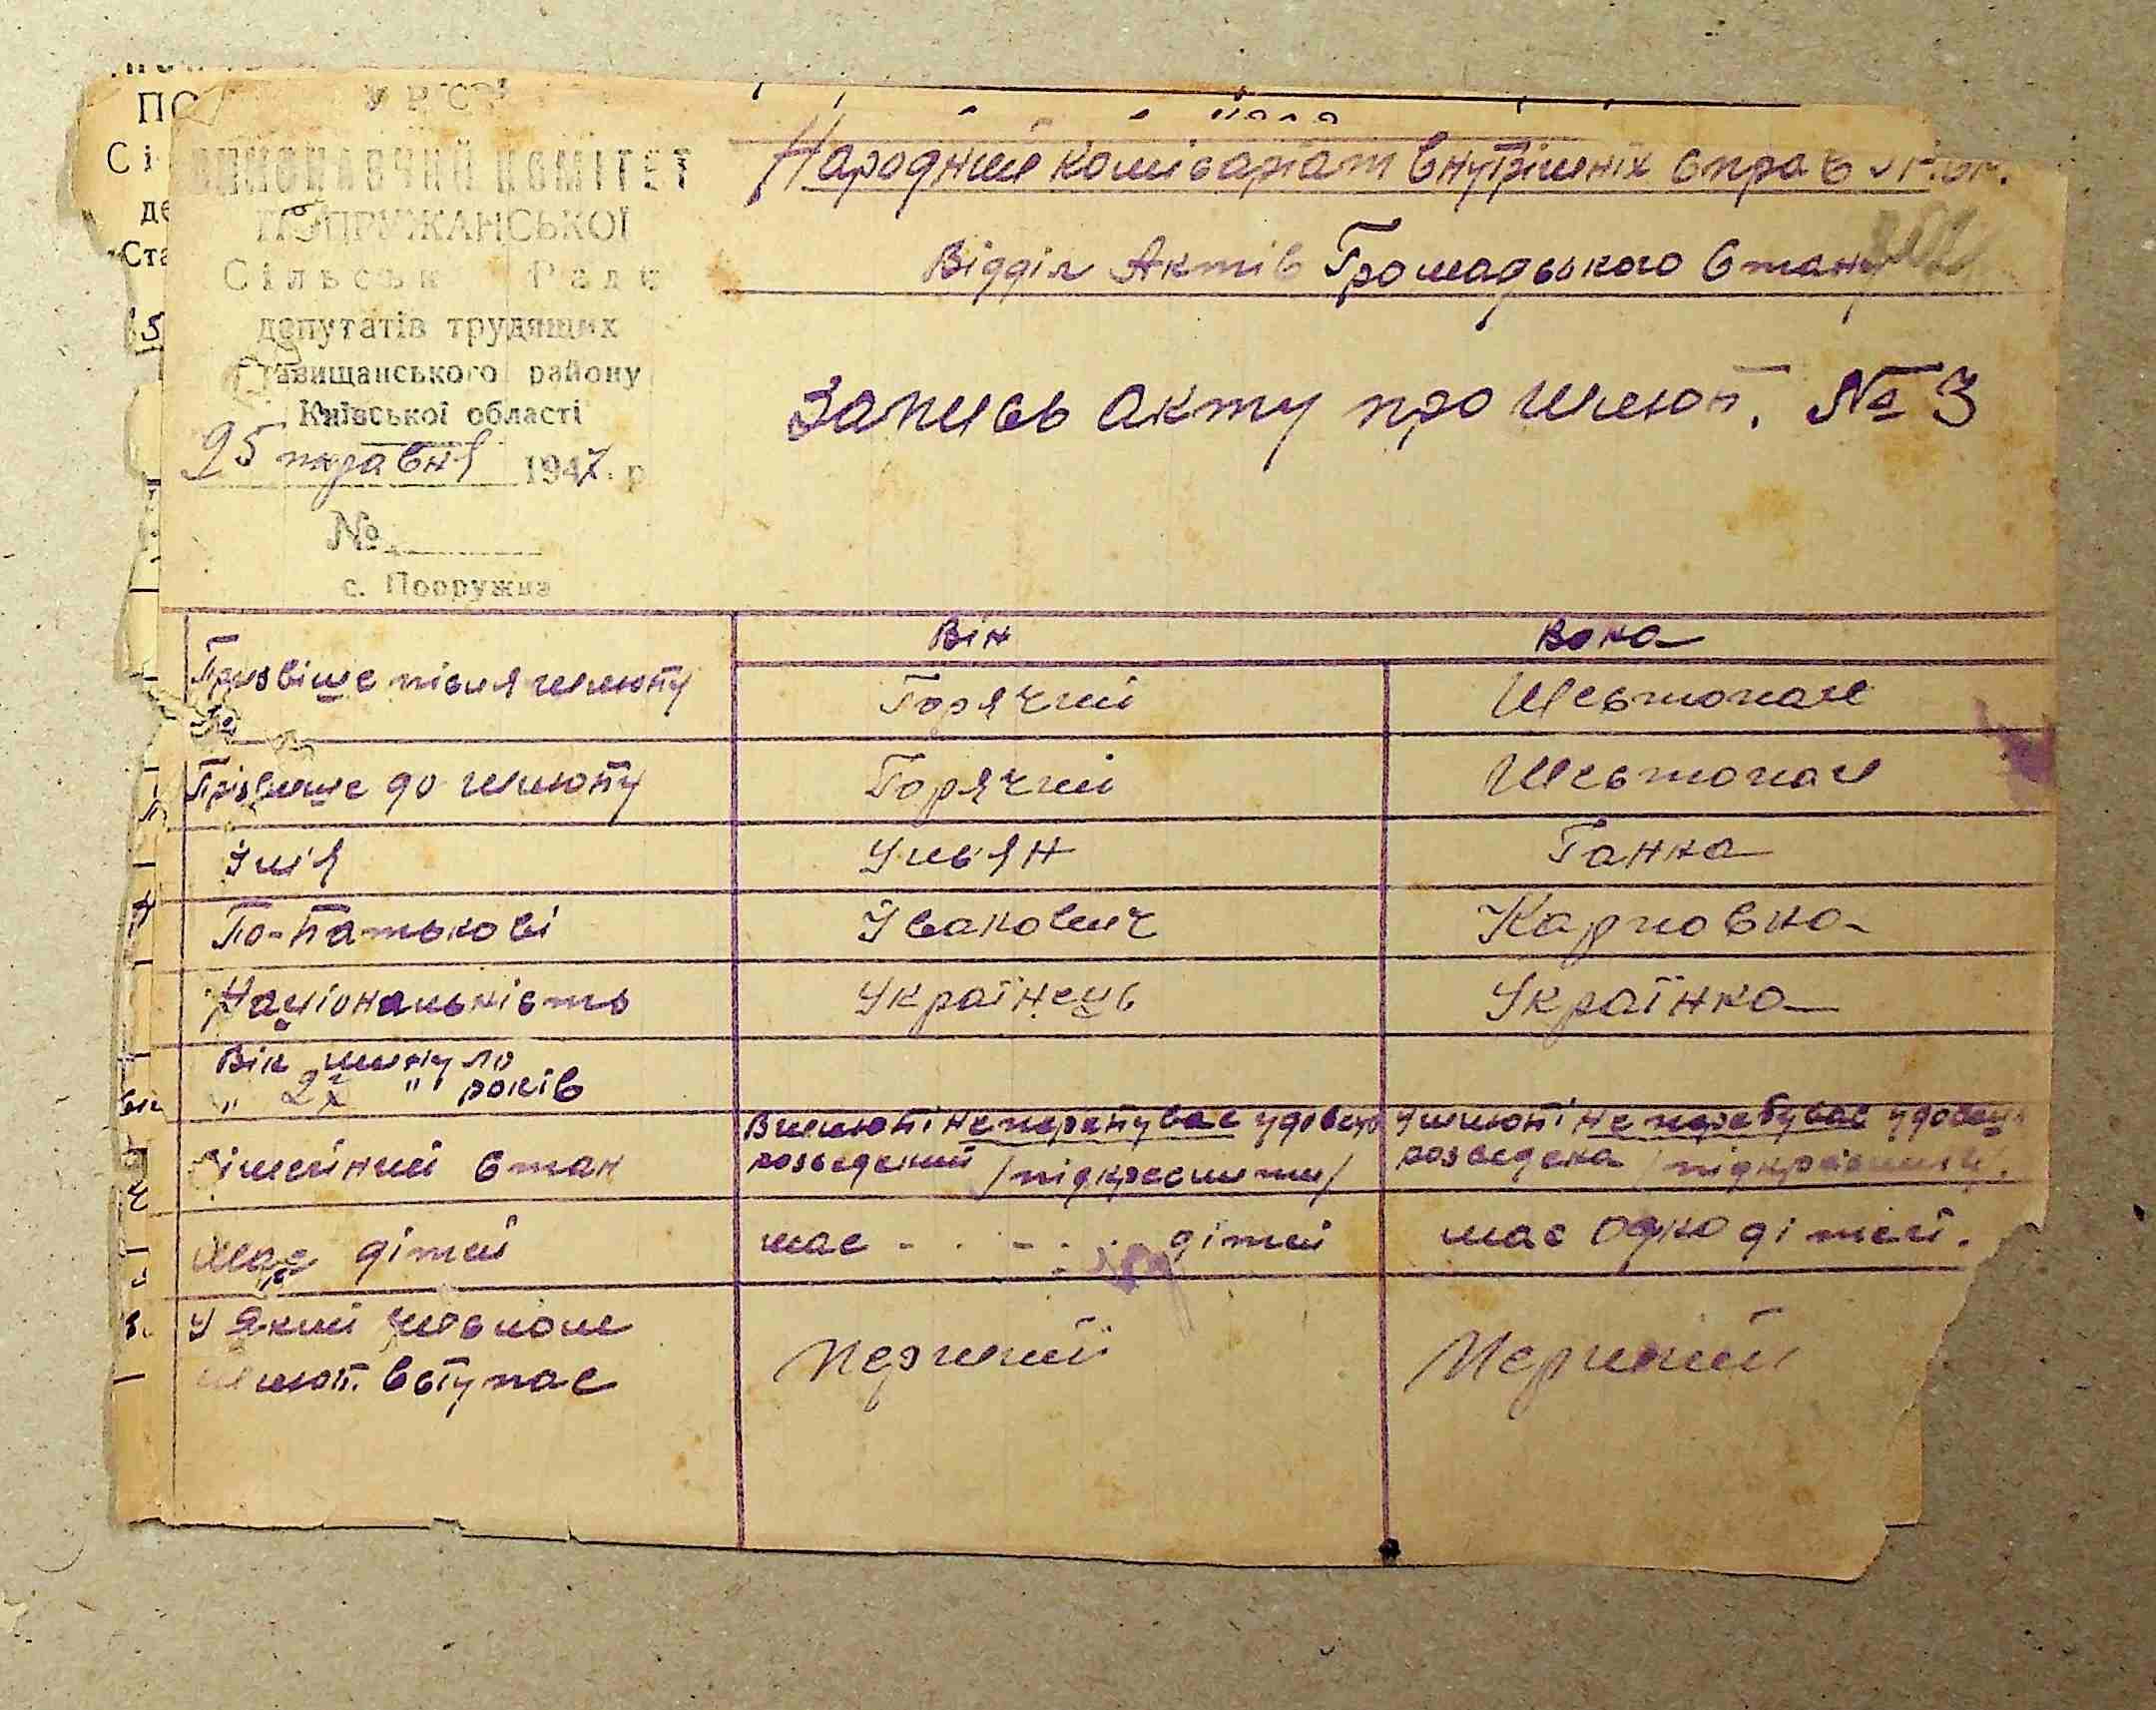 У Р С Р
ВИКОНАВЧИЙ КОМІТЕТ
ПОПРУЖАНСЬКОЇ
Сільськ Ради
депутатів трудящих
Ставищанського району
Київської області
25 травня 1947 р
№
с. Попружна
ПО
Сі
де
Ста
Народний комісаріат внутрішніх справ
Відділ Актів Громадського Стану
Запись акту про шлюб. № 3
Він Вона
Призвіще після шлюбу Горячий Шевтопал
Прізвище до шлюбу Горячий Шевтопал
Імія Ульян Ганна
По-батькові Іванович Карповна
Національність Українець Українка
Вік минуло
" 2 " років
Сімейний стан
В шлюбі не перебуває удовець
розведений /підкреслити/
У шлюбі не перебуває удовиця
розведена /підкреслити/
має дітей має - . . - . . дітей має одно дітей.
У який числом
шлюб вступає
Перший Перший